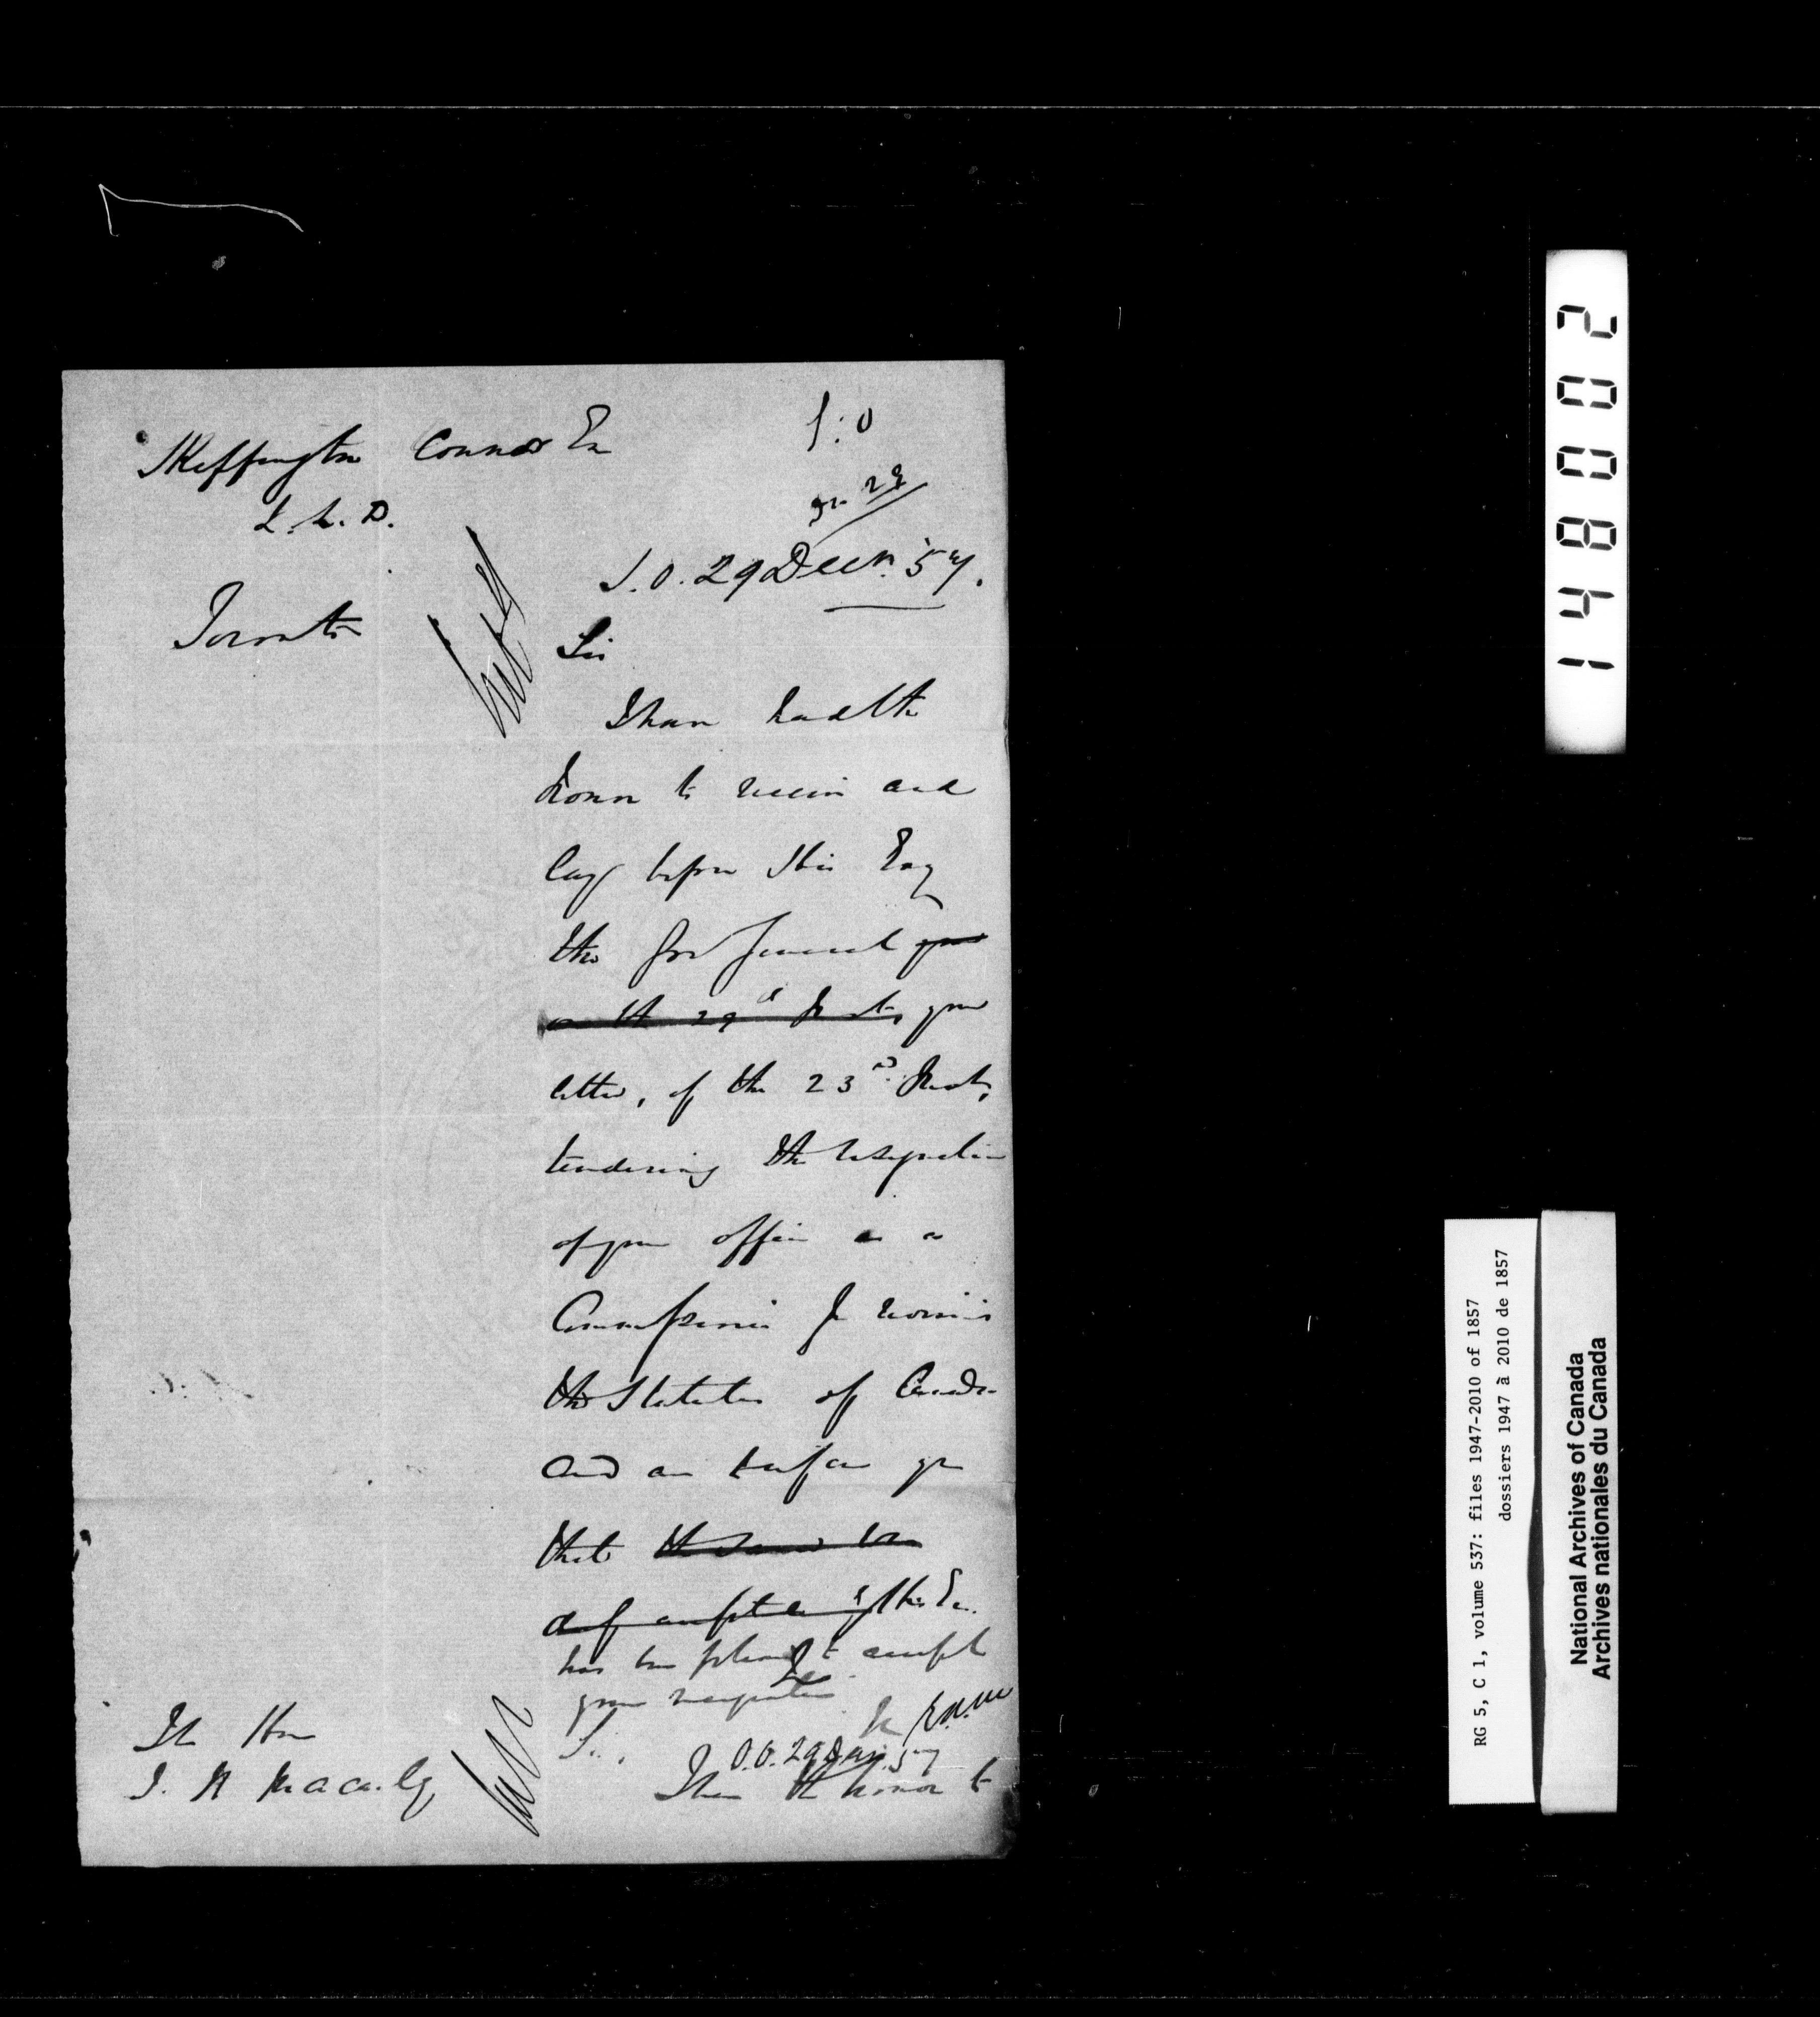 Skeffington Connor Esq
L.L.D.
Toronto
S.O
29
S.O. 29 Decr. '57.
Sir
I have had the
honor to receive and
lay before His Exy
the Gov General your
on the 29th Inst, your
letter, of the 23rd Inst,
tendering the resignation
of your office as a
Commissioner for revising
the Statutes of Canada
and am to inform you
that the same has
His Ex.
has been pleased to accept
your resignation
The Hon
J. B Macaulay
S.O. 29 Dec. 57
Sir,
I have the honor to
14802
RG 5, C 1, volume 537: files 1947-2010 of 1857
dossiers 1947 à 2010 de 1857
National Archives of Canada
Archives nationales du Canada